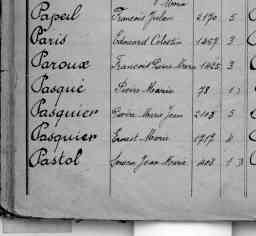 Papeil François Julien 2170 5
Paris Edouard Celestin 1457 3
Paroux François Pierre Marie 1425 3
Pasqué Pierre Marie 78 1
Pasquier Pierre Marie Jean 2103 5
Pasquier Ernest Marie 1717 4
Pastol Jean Marie 403 1 3